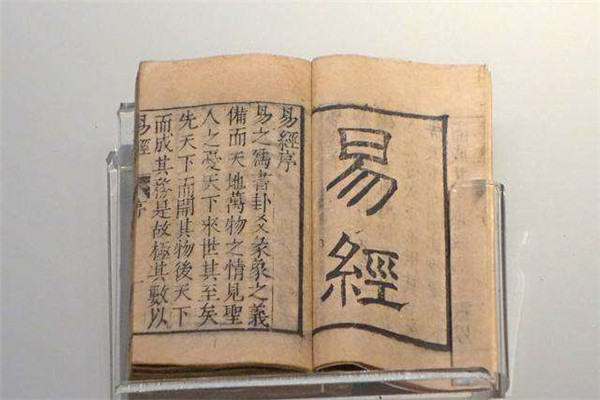 易經
易經序
易之爲書卦爻彖象之義
備而天地萬物之情見聖
人之憂天下來世其至矣
先天下而開其物後天下
而成其務是故極其數以
易經 序